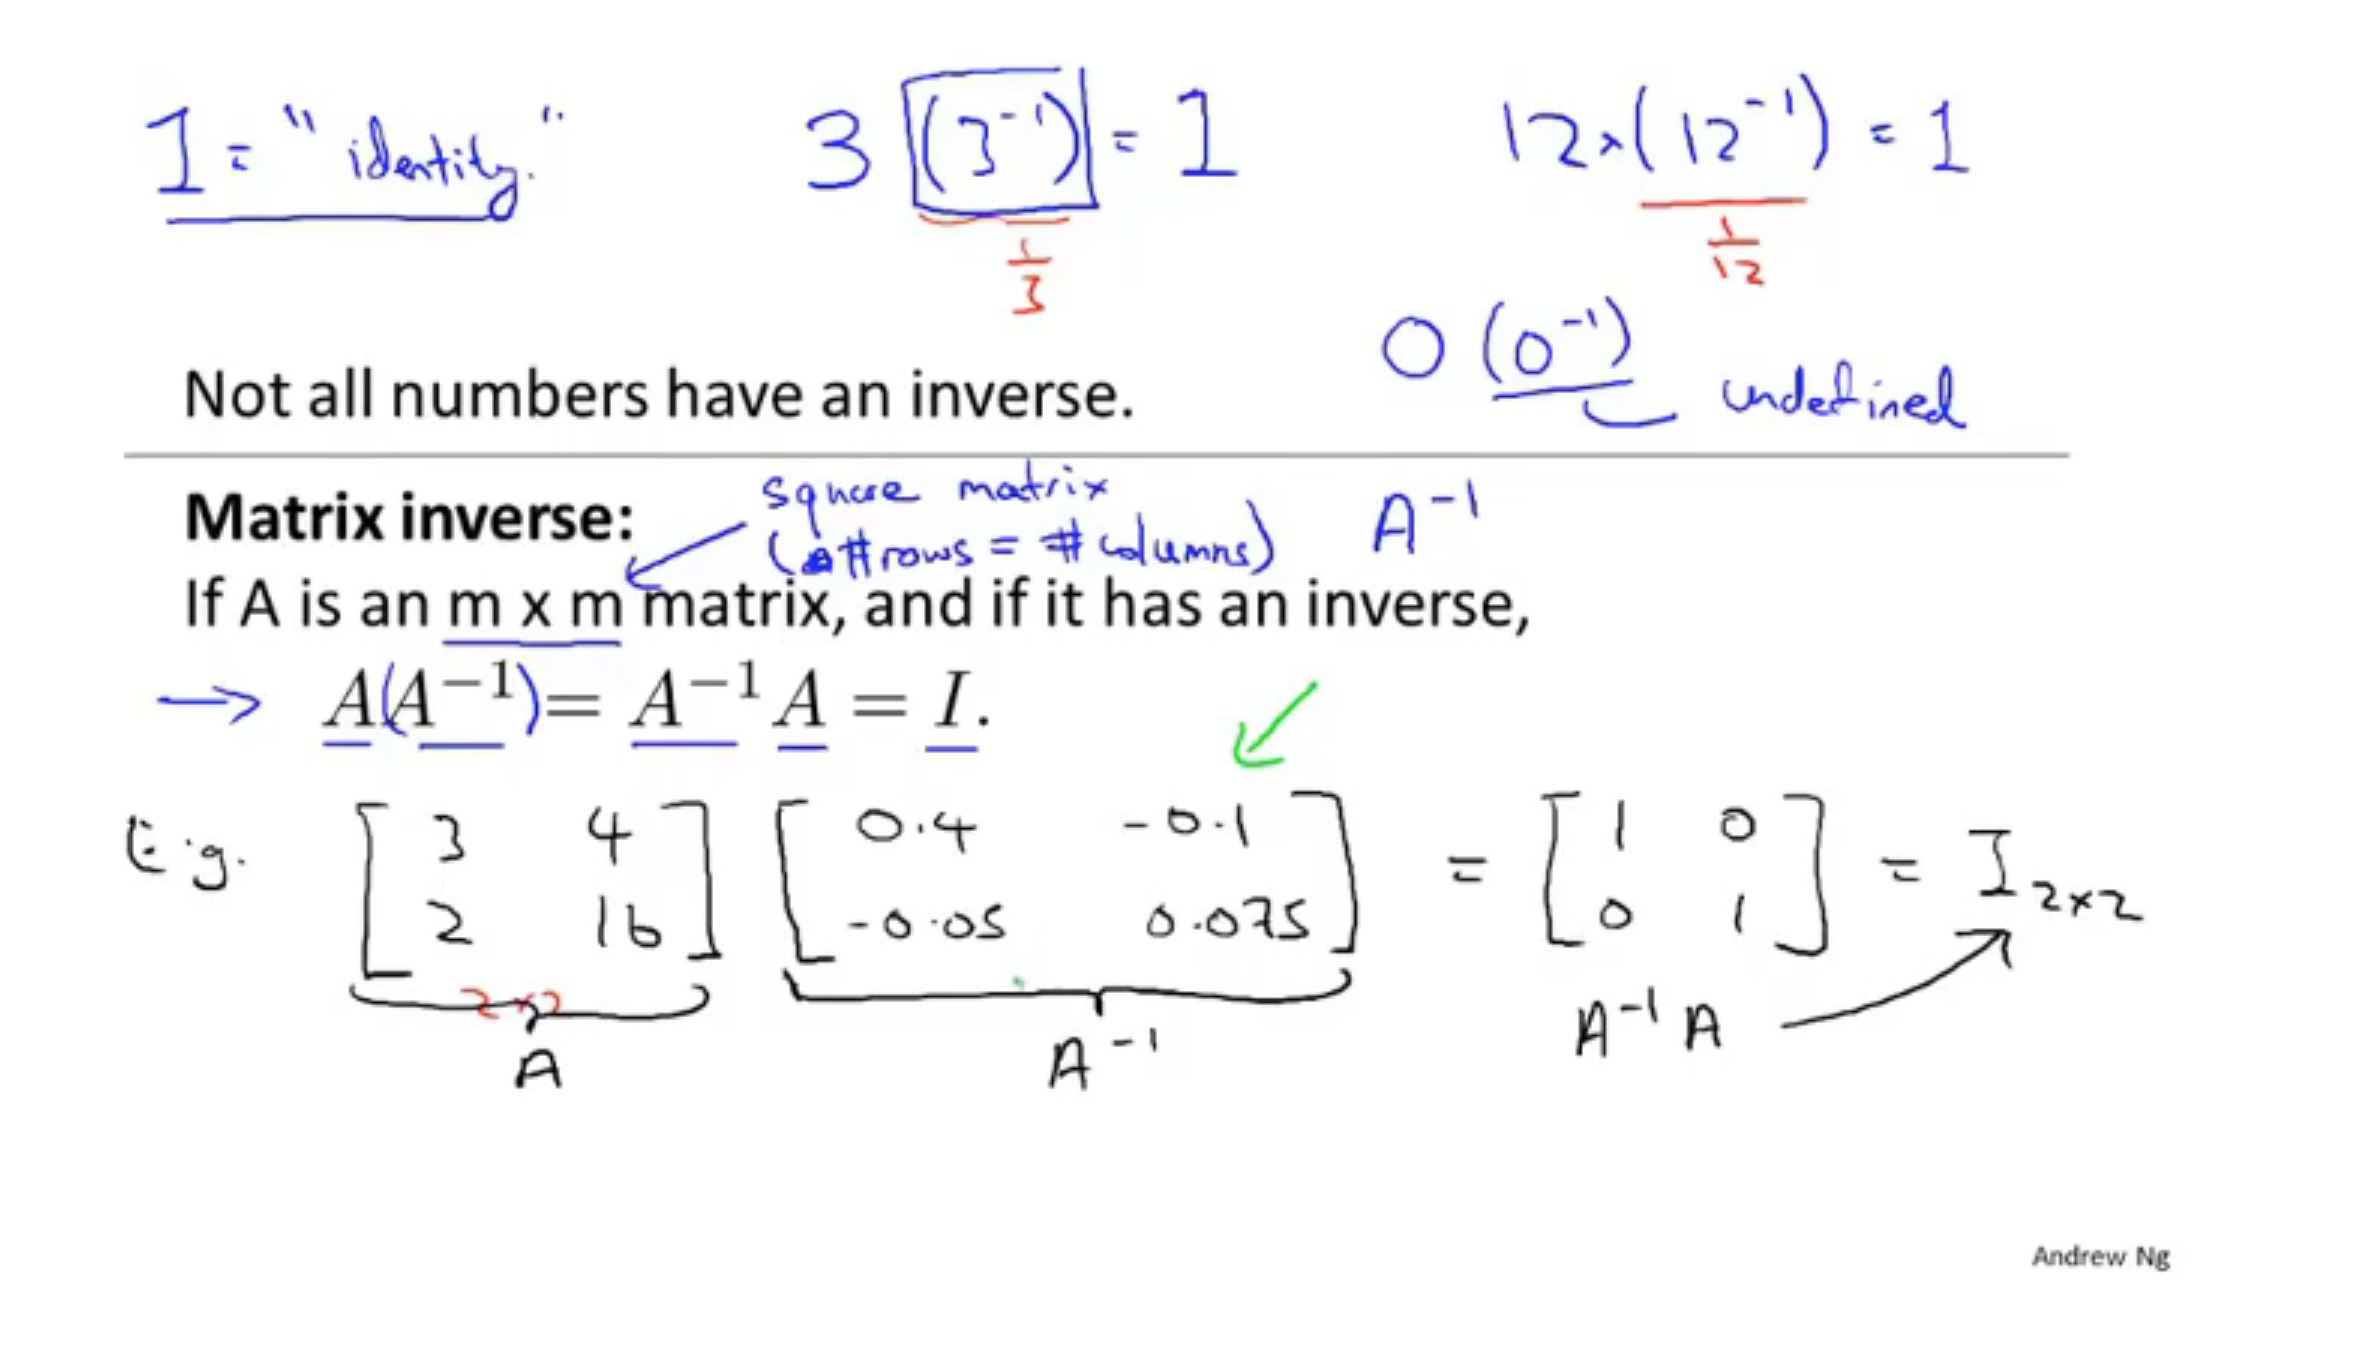 1 = "identity." 3 (3⁻¹) = 1 12×(12⁻¹) = 1
1/3 1/12
0 (0⁻¹) undefined
Not all numbers have an inverse.
Matrix inverse: square matrix A⁻¹
(#rows = #columns)
If A is an m x m matrix, and if it has an inverse,
→ A(A⁻¹) = A⁻¹A = I.
E.g. [3 4 [0.4 -0.1 = [1 0 = I 2×2
2 16] -0.05 0.075] 0 1]
2×2
A A⁻¹ A⁻¹A
Andrew Ng